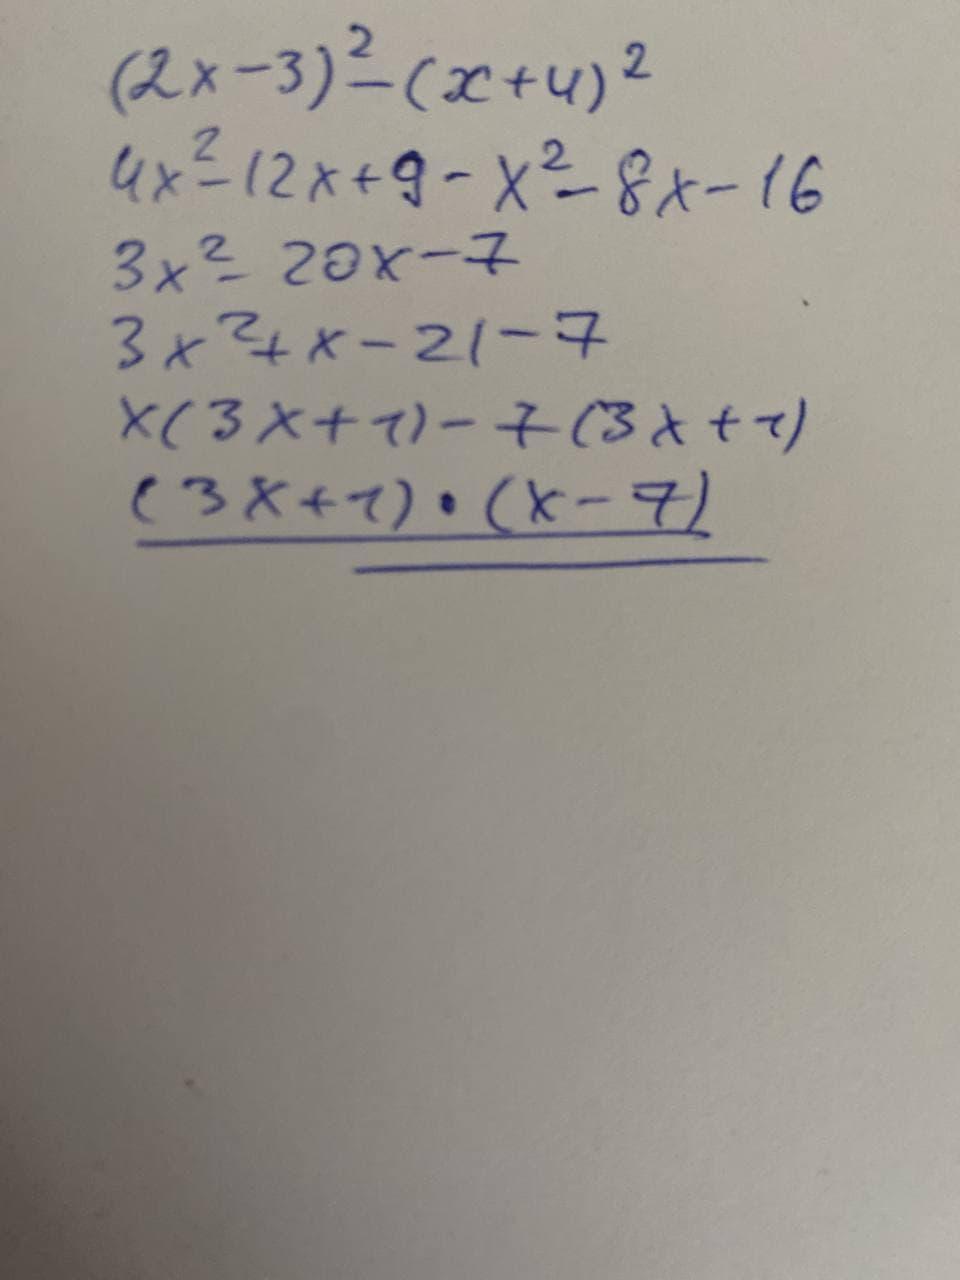 (2x-3)²-(x+4)²
4x²-12x+9-x²-8x-16
3x²-20x-7
3x²+x-21-7
x(3x+1)-7(3x+1)
(3x+1)·(x-7)